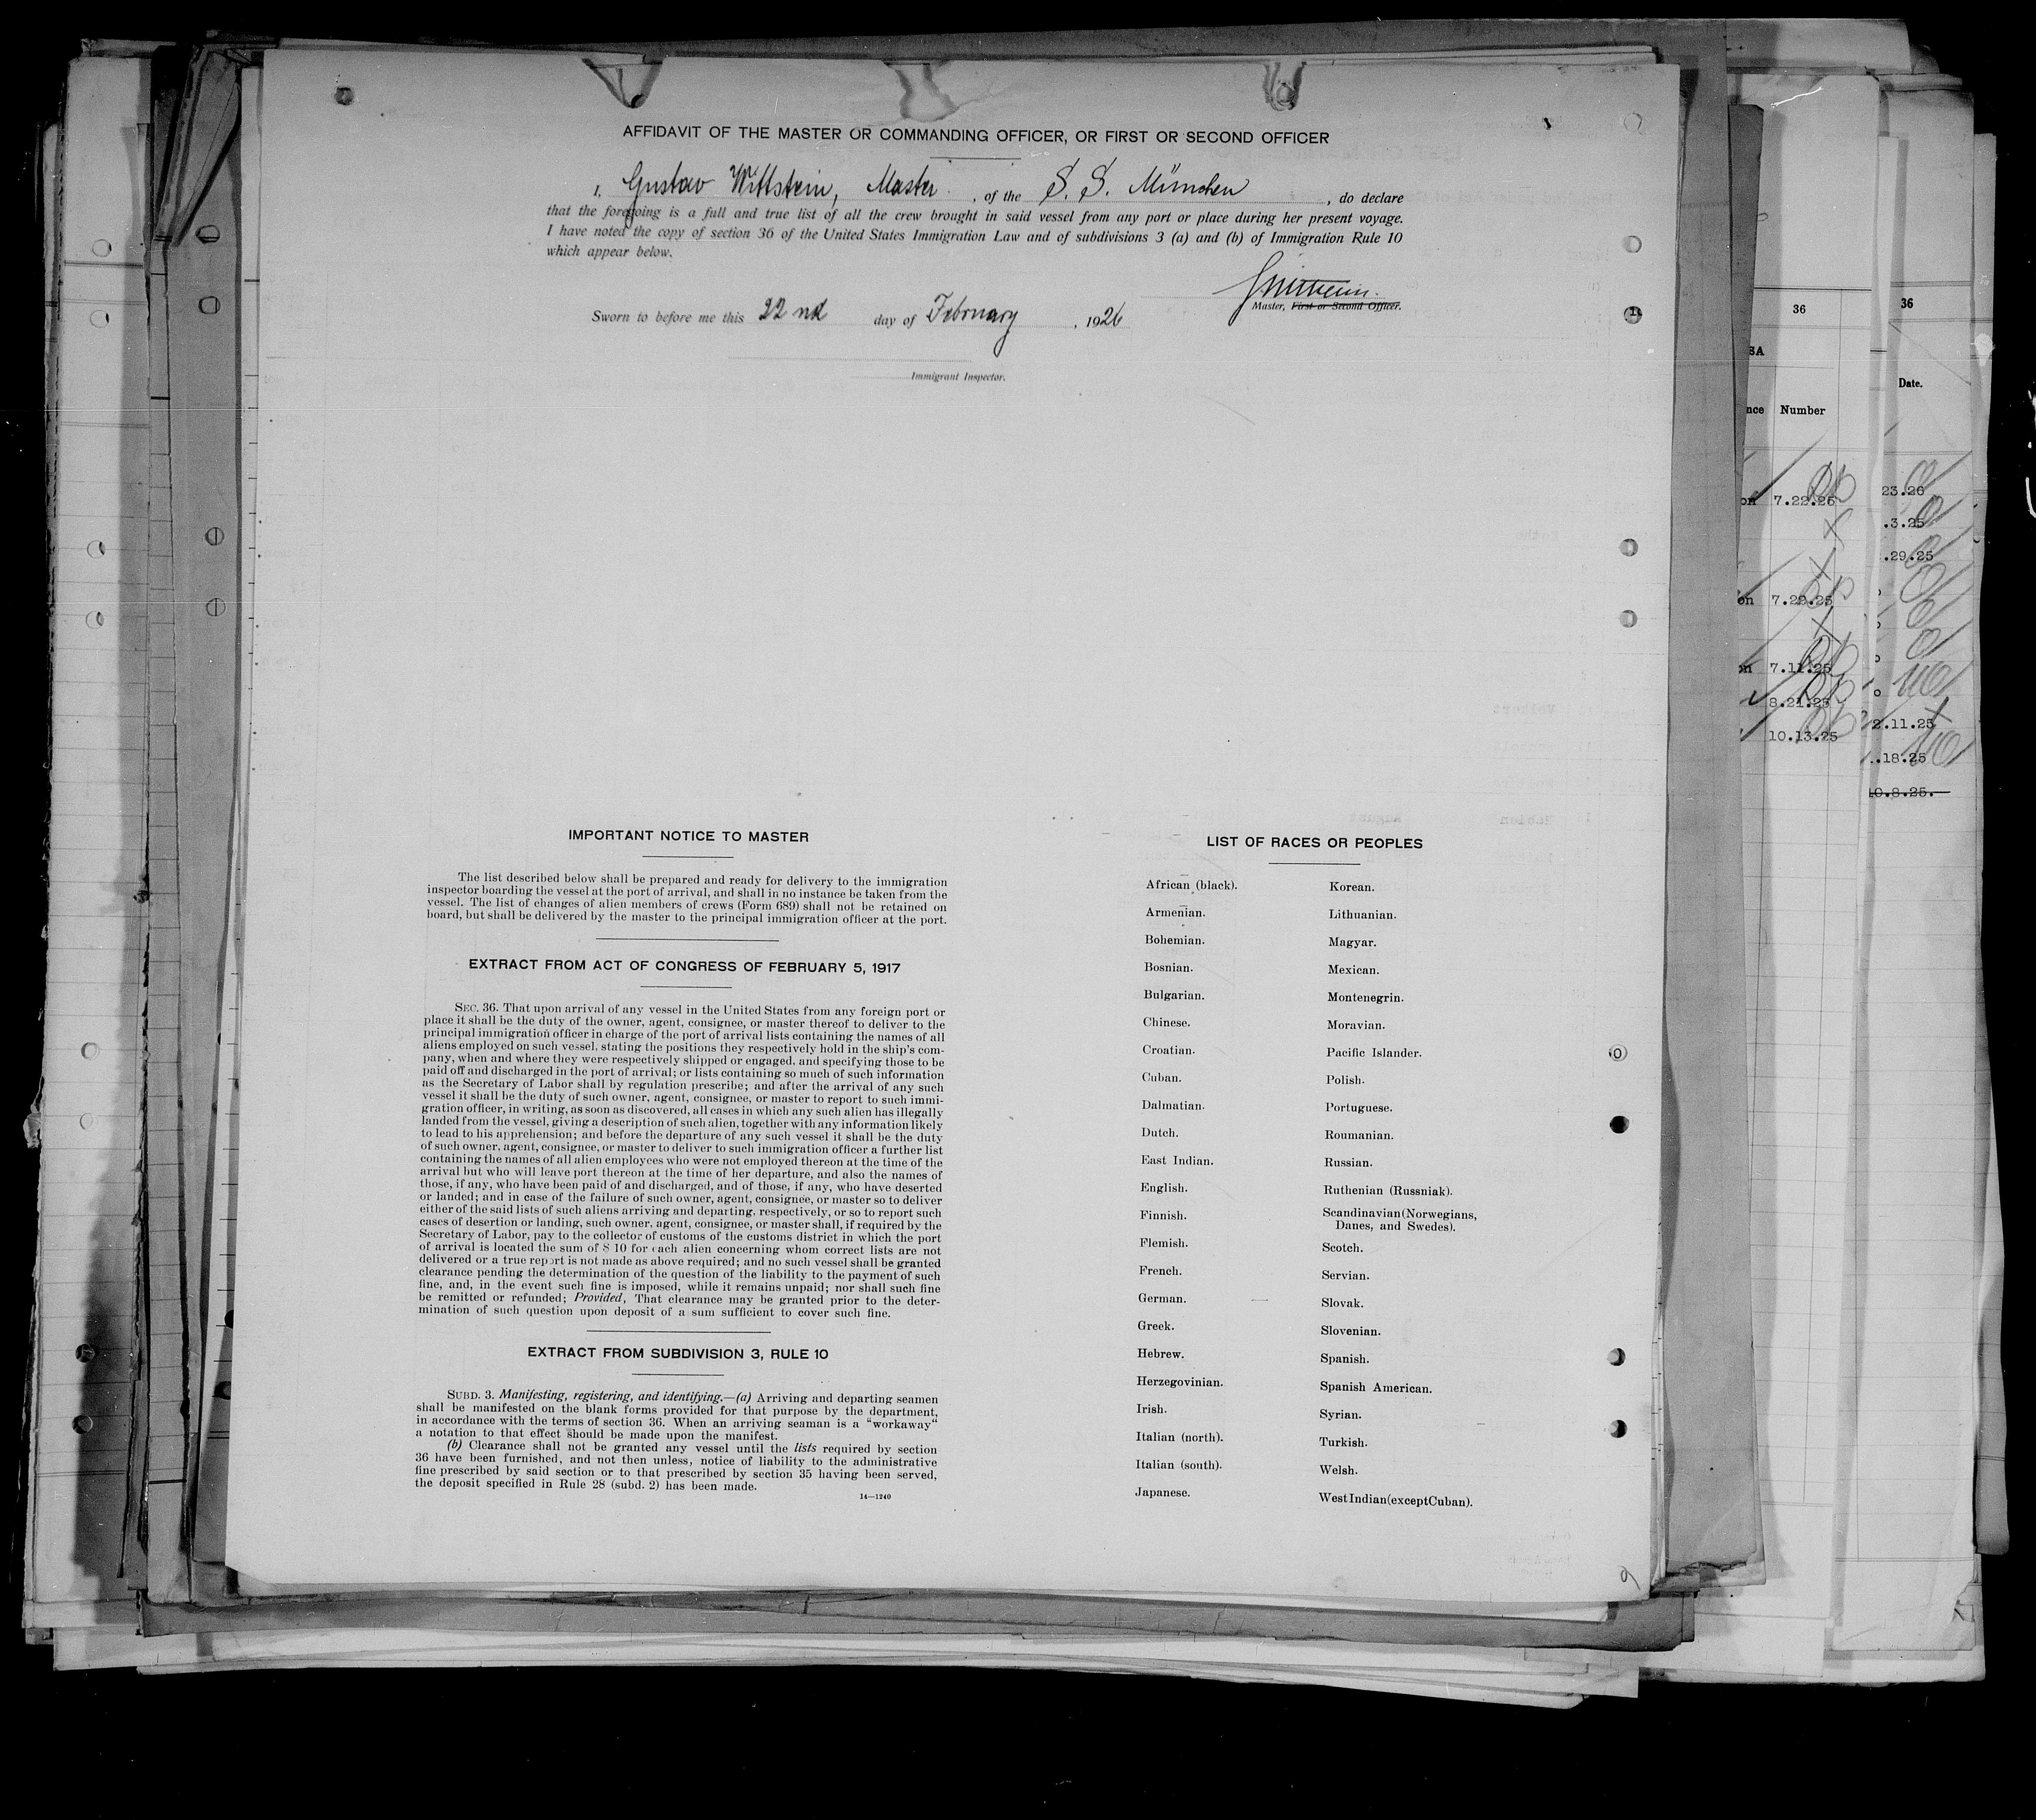 AFFIDAVIT OF THE MASTER OR COMMANDING OFFICER, OR FIRST OR SECOND OFFICER
I, Gustav Wittstein, Master, of the S. S. München, do declare
that the foregoing is a full and true list of all the crew brought in said vessel from any port or place during her present voyage.
I have noted the copy of section 36 of the United States Immigration Law and of subdivisions 3 (a) and (b) of Immigration Rule 10
which appear below.
Master, First or Second Officer.
Sworn to before me this 22nd day of February, 1926
Immigrant Inspector.
IMPORTANT NOTICE TO MASTER
The list described below shall be prepared and ready for delivery to the immigration
inspector boarding the vessel at the port of arrival, and shall in no instance be taken from the
vessel. The list of changes of alien members of crews (Form 689) shall not be retained on
board, but shall be delivered by the master to the principal immigration officer at the port.
EXTRACT FROM ACT OF CONGRESS OF FEBRUARY 5, 1917
SEC. 36. That upon arrival of any vessel in the United States from any foreign port or
place it shall be the duty of the owner, agent, consignee, or master thereof to deliver to the
principal immigration officer in charge of the port of arrival lists containing the names of all
aliens employed on such vessel, stating the positions they respectively hold in the ship's com-
pany, when and where they were respectively shipped or engaged, and specifying those to be
paid off and discharged in the port of arrival; or lists containing so much of such information
as the Secretary of Labor shall by regulation prescribe; and after the arrival of any such
vessel it shall be the duty of such owner, agent, consignee, or master to report to such immi-
gration officer, in writing, as soon as discovered, all cases in which any such alien has illegally
landed from the vessel, giving a description of such alien, together with any information likely
to lead to his apprehension; and before the departure of any such vessel it shall be the duty
of such owner, agent, consignee, or master to deliver to such immigration officer a further list
containing the names of all alien employees who were not employed thereon at the time of the
arrival but who will leave port thereon at the time of her departure, and also the names of
those, if any, who have been paid of and discharged, and of those, if any, who have deserted
or landed; and in case of the failure of such owner, agent, consignee, or master so to deliver
either of the said lists of such aliens arriving and departing, respectively, or so to report such
cases of desertion or landing, such owner, agent, consignee, or master shall, if required by the
Secretary of Labor, pay to the collector of customs of the customs district in which the port
of arrival is located the sum of $ 10 for each alien concerning whom correct lists are not
delivered or a true report is not made as above required; and no such vessel shall be granted
clearance pending the determination of the question of the liability to the payment of such
fine, and, in the event such fine is imposed, while it remains unpaid; nor shall such fine
be remitted or refunded; Provided, That clearance may be granted prior to the deter-
mination of such question upon deposit of a sum sufficient to cover such fine.
EXTRACT FROM SUBDIVISION 3, RULE 10
SUBD. 3. Manifesting, registering, and identifying.—(a) Arriving and departing seamen
shall be manifested on the blank forms provided for that purpose by the department,
in accordance with the terms of section 36. When an arriving seaman is a "workaway"
a notation to that effect should be made upon the manifest.
(b) Clearance shall not be granted any vessel until the lists required by section
36 have been furnished, and not then unless, notice of liability to the administrative
fine prescribed by said section or to that prescribed by section 35 having been served,
the deposit specified in Rule 28 (subd. 2) has been made.
14—1240
LIST OF RACES OR PEOPLES
African (black).
Armenian.
Bohemian.
Bosnian.
Bulgarian.
Chinese.
Croatian.
Cuban.
Dalmatian.
Dutch.
East Indian.
English.
Finnish.
Flemish.
French.
German.
Greek.
Hebrew.
Herzegovinian.
Irish.
Italian (north).
Italian (south).
Japanese.
Korean.
Lithuanian.
Magyar.
Mexican.
Montenegrin.
Moravian.
Pacific Islander.
Polish.
Portuguese.
Roumanian.
Russian.
Ruthenian (Russniak).
Scandinavian(Norwegians,
Danes, and Swedes).
Scotch.
Servian.
Slovak.
Slovenian.
Spanish.
Spanish American.
Syrian.
Turkish.
Welsh.
West Indian (except Cuban).
9
36
Number
7.22.26
7.29.25
7.11.25
8.21.25
10.13.25
36
Date.
23.26
.3.25
.29.25
2.11.25
.18.25
10.8.25.